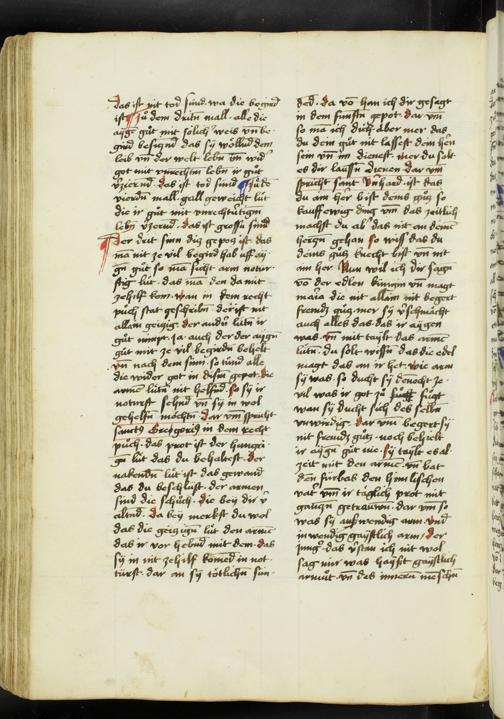 das ist nit tod sünd. wa die begird
ist zů dem dritn mall. alle die
ir gůt mit solich weis vn be-
gird besiçnd das sÿ wöllnd dem
leib vn der welt lebn vn wid͛
got mit vnrechtm lebn ir gůt
v͛zernd. das ist tod sünd zůde
vierdn mall. gell gewercht lüt
die ir gůt mit vnrechtūtigm
lebn v͛zernd. das ist groſsi sünd
Der drit sinn diß gepotz ist das
ma nit ze vil begird hab uff aÿ-
gn gůt so ma sicht arm notur-
ftig lüt. das ma den da mit
ze hilf kom. wan in dem recht
půch stat geschribn. der ist nit
allain geizig. der andn̄ lütn ir
gůt nimpt. ja. auch der der aÿgn
gůt mit ze vil begirdn behelt
vn nach dem sinn. so tünd alle
die wider got in disem gepot. die
arme lütn nit helfnd. so sÿ ir
noturft sehnd vn sÿ in wol
gehelfn möchtn. dar vm spricht
sanctꝰ Gregoriꝰ in dem recht
půch. das prot ist der hungri-
gn lüt das du behaltest. der
nakendn lüt ist das gewand
das du beschlüst. der armen
sind die schůch. die beÿ dir v͛
altnd. da beÿ merkst du wol
das die geizign lüt den arme
das ir vor hebnd mit dem. das
sÿ in nit ze hilf komed in not-
türft. dar an sÿ tötlichn sün-
ded. da vō han ich dir gesagt
in dem funftn gepot. dar vm
so ma ich dich aber mer das
du dem gůt mit lassest dem hn͛
sem vn im dienest. mer du solt
es dir laussn dienen. dar vm
spricht sant Bnhard. ist das
du am her bist deins gůz so
kauff ewig ding vm das zeitlich
machst du al das nit an deim
herzn gehan so wiss das du
deins gůz knecht bist vn nit
am her. Nun wil ich dir sagn
vō der edlen küngin vn magt
maria die nit allain nit begert
fremdz gůz. mer sÿ v͛schmächt
auch alles das. das ir aÿgen
was. vn mit taÿlt das arme
lütn. du solt wissn das die edel
magt das an ir het. wie arm
sÿ was. so ducht sÿ dēnocht ze
vil was ir got zů fůgt
wan sÿ ducht sich des selbn
unwirdig. dar vm begert sÿ
nit fremdz gůz. noch behielt
ir aÿgn gůt nie. sÿ taÿlt es al
zeit mit den arme vn bat
den fürbas den himlischen
vat͛ vm ir täglich prot mit
ganzn getrauwn. dar vm so
was sÿ aufwendig arm vnd
inwendig gaÿstlich arm / der
jung. das v͛stan ich nit wol
sag mir was haÿsst gaÿstlich
armůt. vn des innern menschn